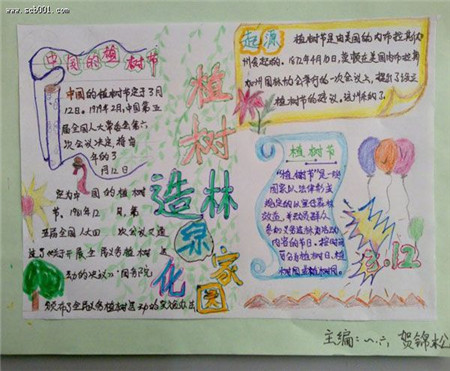 www.sc6001.com
中国的植树节
中国的植树节定于3月
12日。1979年2月,中国第五
届全国人大常委会第六
次会议决定,将每
年的3
月12日
定为中国的植树
节。1981年12月,第
五届全国人大四次会议
开展全民义务植树
动的决议》"国务院
颁布了全民义务植树
植树
造林
绿化
家园
起源
植树节是由美国的内布拉斯加
州发起的。1872年4月10日,
加州园林协会举行的一次会议上,提出了设立
植树节的
植树节
"植树节"是一些
国家以法律形式
规定的以宣传森林
效益,并动员群众
参加义务造林为活动
内容的节日。按时间
可分为植树日、植
树周或植树月。
3.12
主编:一、六 贺锦松